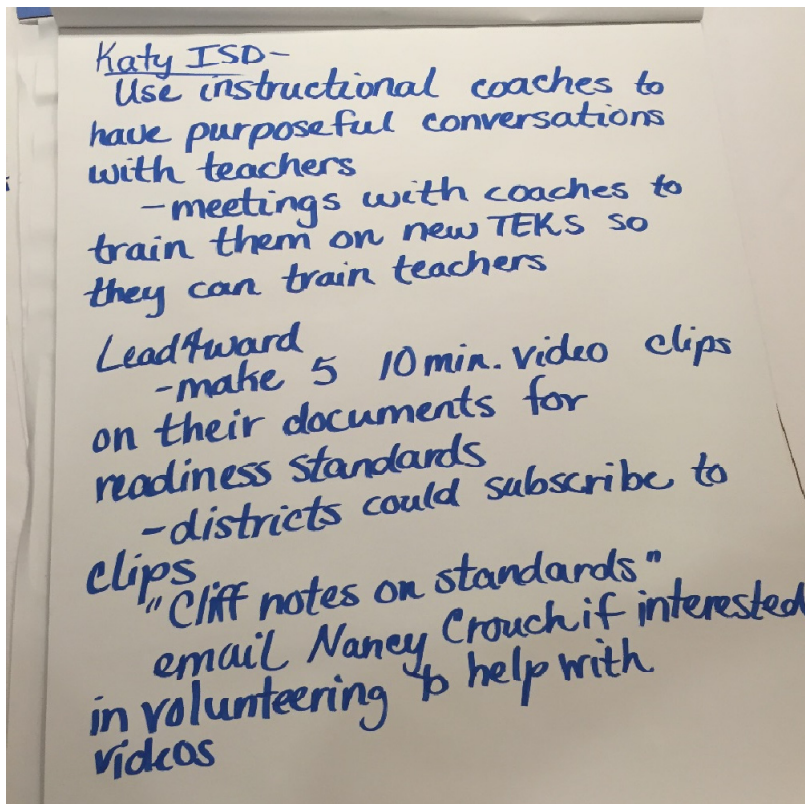 Katy ISD-
Use instructional coaches to
have purposeful conversations
with teachers
- meetings with coaches to
train them on new TEKS so
they can train teachers
Lead4ward
- make 5 10 min. video clips
on their documents for
readiness standards
- districts could subscribe to
clips
"Cliff notes on standards"
email Nancy Crouch if interested
in volunteering to help with
videos